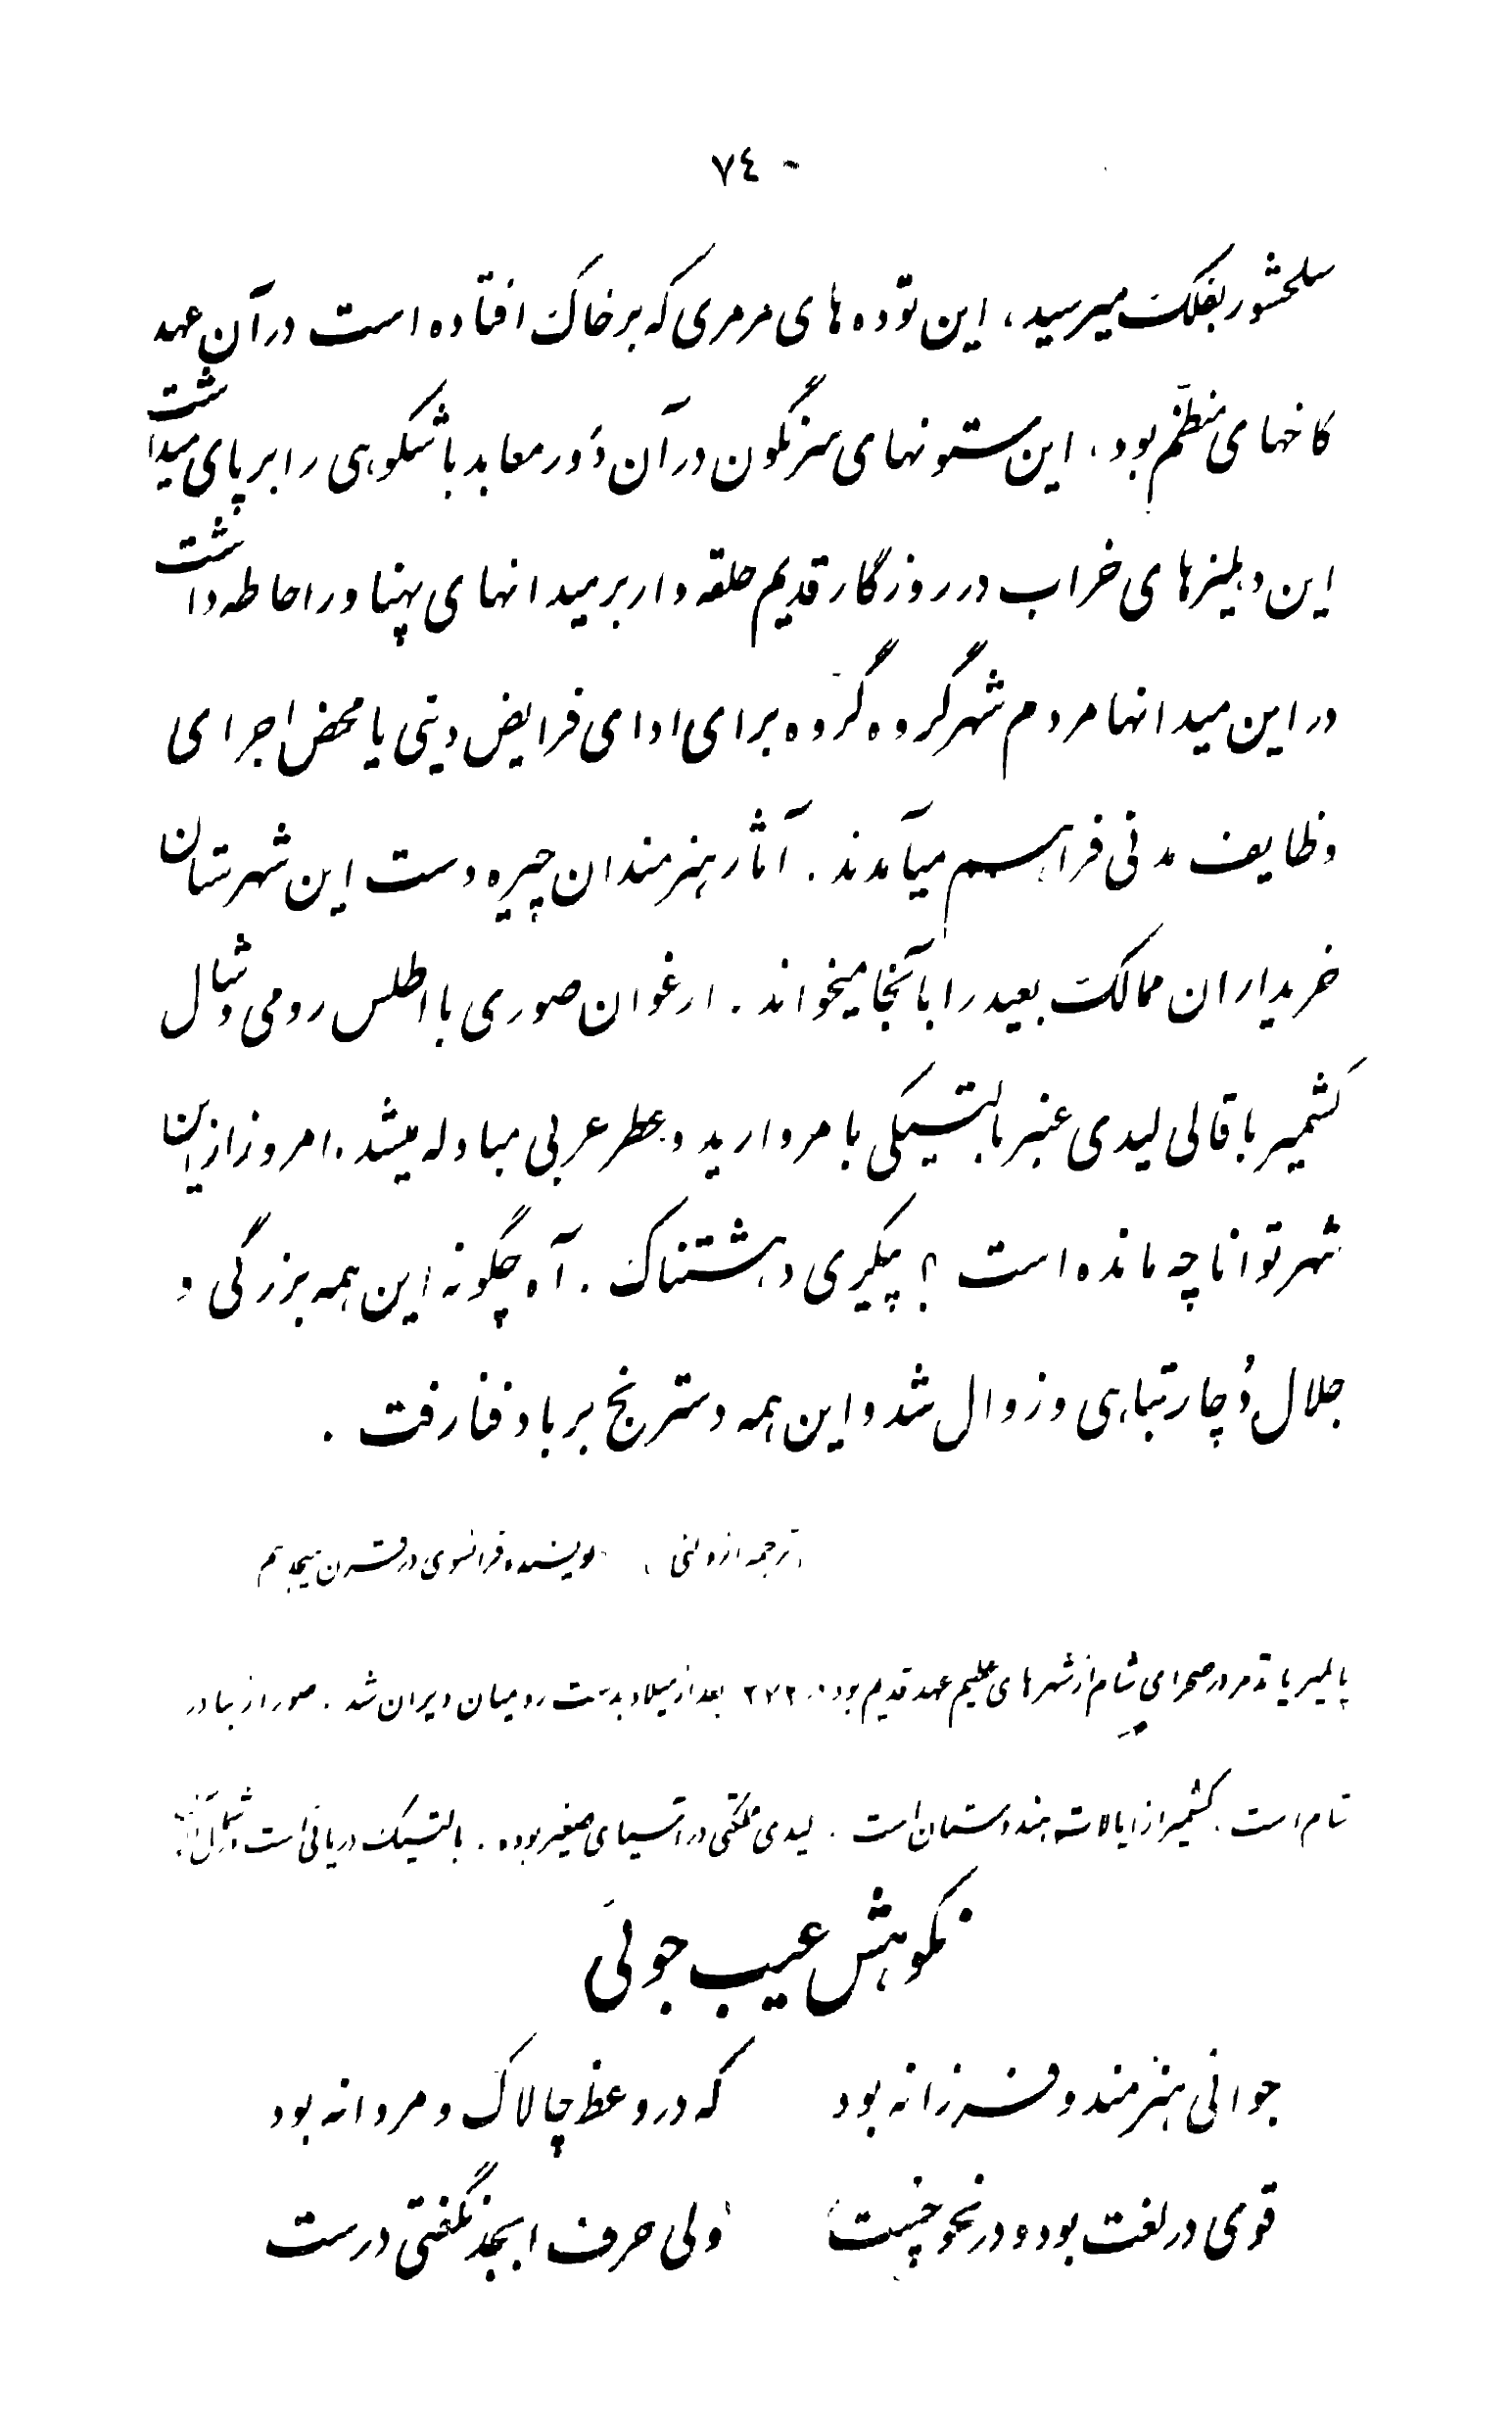 - ٧٤
سلحشور بفلک میرسید، این توّده های مرمری که بر خاک افتاده است در آن عهد
کاخهای منظّم بود، این ستونهای سرنگون در آن دَور معابد باشکوهی را برپای میداشت
این دهلیزهای خراب در روزگار قدیم حلقه وار بر میدانهای پهناور احاطه داشت
در این میدانها مردم شهر گروه گروه برای ادای فرایض دینی یا محض اجرای
وظایف مدنی فراهم میآمدند. آثار هنرمندان چیره دست این شهرستان
خریداران ممالک بعید را بآنجا میخواند. ارغوان صوری با اطلس رومی و شال
کشمیر با قالی لیدی عنبر بالتیکی با مروارید و عطر عربی مبادله میشد. امروز از این
شهر توانا چه مانده است؟ پیکری دهشتناک. آه چگونه این همه بزرگی و
جلال دُچار تباهی و زوال شد و این همه دسترنج بر باد فنا رفت.
ترجمه از ولنی نویسنده فرانسوی در قرن هیجدهم
پالمیر یا تدمر در صحرای شام از شهرهای عظیم عهد قدیم بود در ۲۷۲ بعد از میلاد بدست رومیان ویران شد. صور از بنادر
شام است. کشمیر از ایالات هندوستان است. لیدی مملکتی در آسیای صغیر بوده. بالتیک دریائی است در شمال
نکوهش عیب جوئی
جوانی هنرمند و فرزانه بود که در وعظ چالاک و مردانه بود
قوی در لغت بود و در نحو چست ولی حرف ابجد نگفتی درست